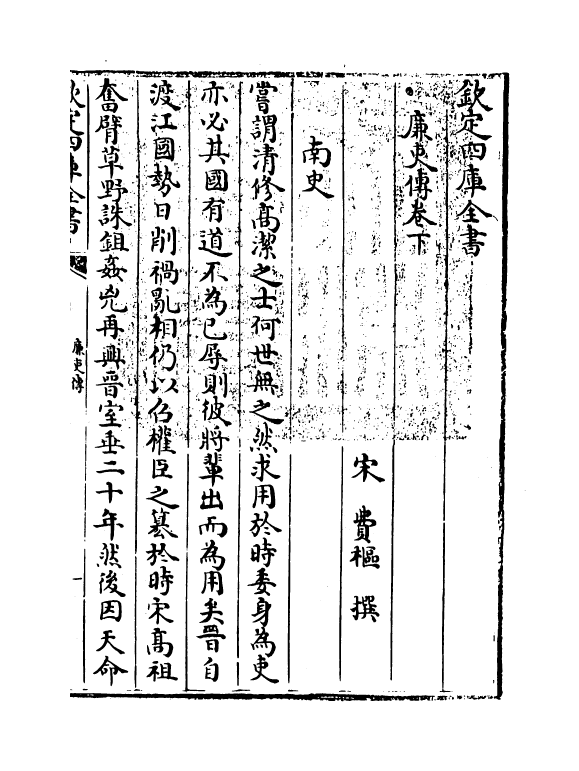 欽定四庫全書
廉吏傳卷下
宋 費樞 撰
南史
嘗謂清修髙潔之士何世無之然求用於時委身為吏
亦必其國有道不為已辱則彼將輩出而為用矣晉自
渡江國勢日削禍亂相仍以召權臣之簒於時宋髙祖
奮臂草野誅鉏姦兇再興晉室垂二十年然後因天命
欽定四庫全書
廉吏傳
一